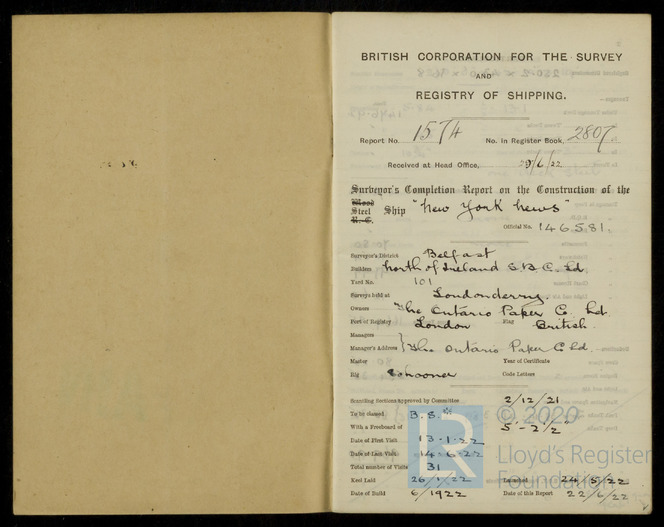 BRITISH CORPORATION FOR THE SURVEY
AND
REGISTRY OF SHIPPING.
Report No. 1574 No. in Register Book, 2807
Received at Head Office, 29/6/22
Surveyor's Completion Report on the Construction of the
Wood
Steel Ship "New York News"
R.-C.
Official No. 146581.
Surveyor's District Belfast
Builders North of Ireland S.B.C. Ld
Yard No. 101
Surveys held at Londonderry.
Owners The Ontario Paper Co. Ld.
Port of Registry London Flag British.
Managers
Manager's Address } The Ontario Paper C Ld.
Master Year of Certificate
Rig Schooner Code Letters
Scantling Sections approved by Committee 2/12/21
To be classed B.S.*
With a Freeboard of 5'-2½"
Date of First Visit 13-1-22
Date of Last Visit 14-6-22
Total number of Visits 31
Keel Laid 26/1/22 Launched 24/5/22
Date of Build 6/1922 Date of this Report 22/6/22
© 2020
Lloyd's Register
Foundation